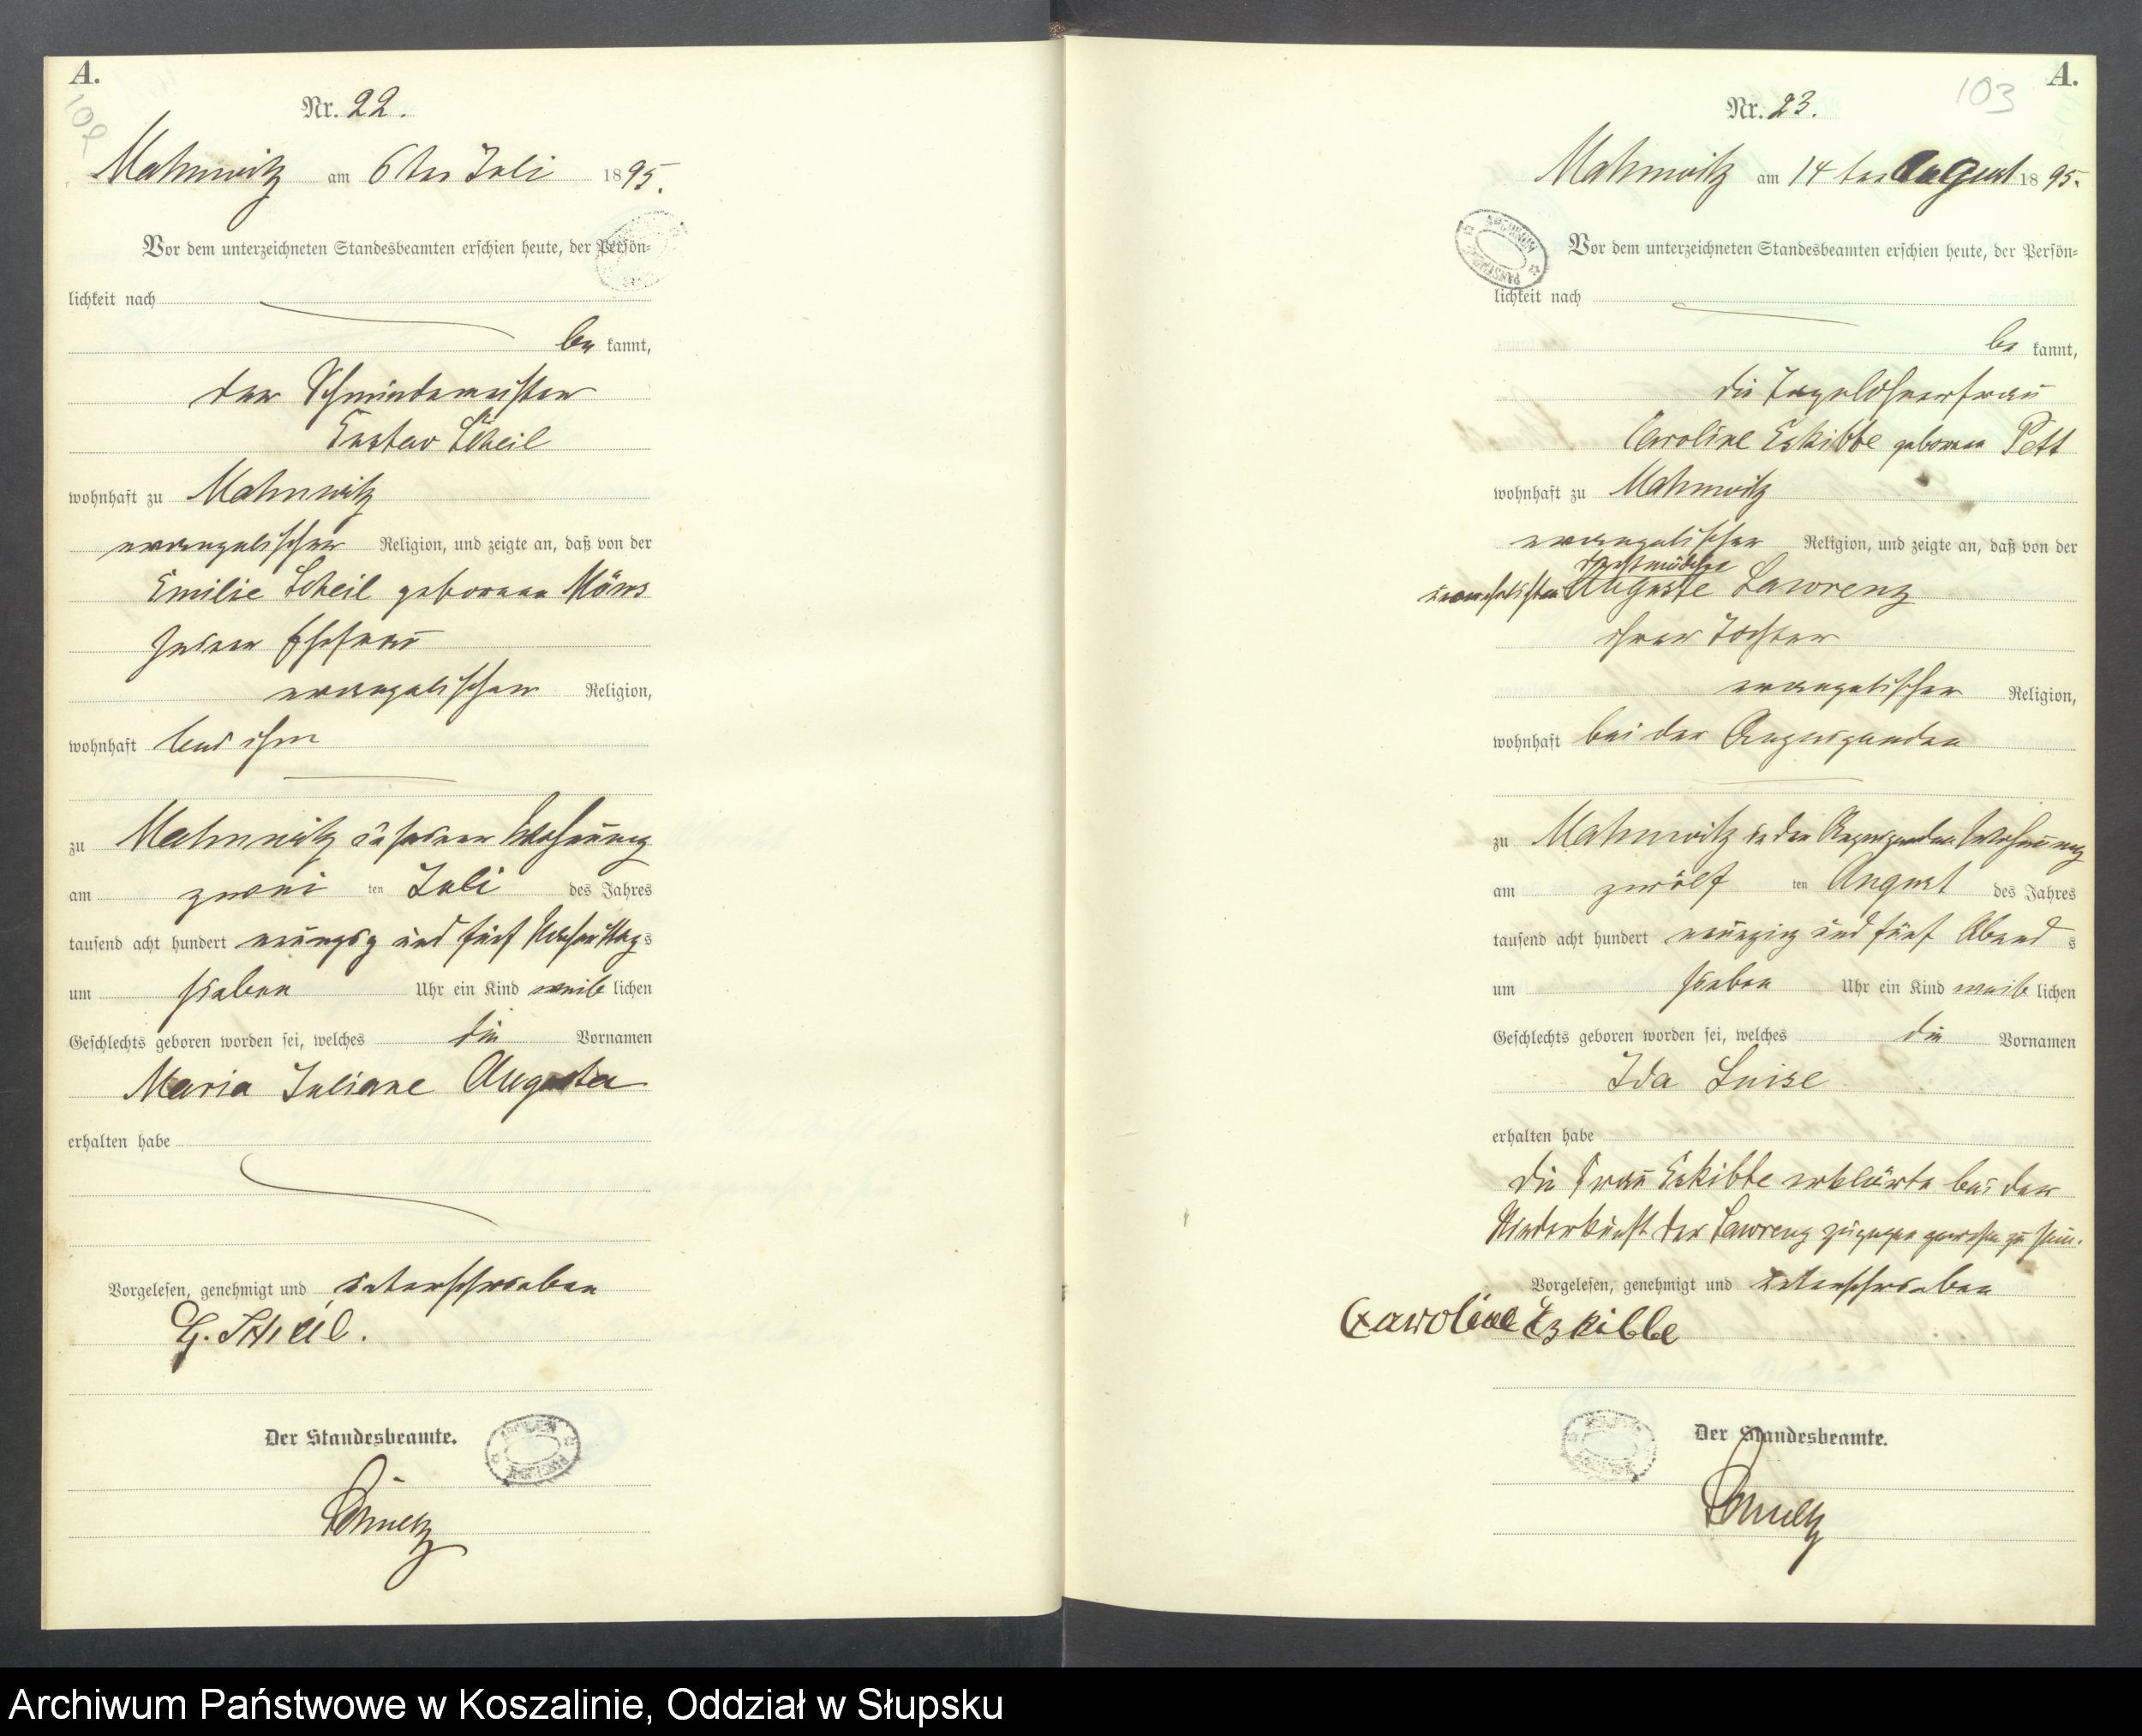 A.
102
Nr. 22.
Mahnwitz am 6ten Juli 1895.
Vor dem unterzeichneten Standesbeamten erschien heute, der Persön-
lichkeit nach
be kannt,
der Schmiedemeister
Gustav Scheil
wohnhaft zu Mahnwitz
evangelischer Religion, und zeigte an, daß von der
Emilie Scheil geborene
seiner Ehefrau
evangelischer Religion,
wohnhaft bei ihm
zu Mahnwitz in seiner Wohnung
am zwei ten Juli des Jahres
tausend acht hundert neunzig und fünf Nachmittags
um sieben Uhr ein Kind weib lichen
Geschlechts geboren worden sei, welches die Vornamen
Maria Juliane Augusta
erhalten habe
Vorgelesen, genehmigt und unterschrieben
G. Scheil.
Der Standesbeamte.
A.
103
Nr. 23.
Mahnwitz am 14ten August 1895.
Vor dem unterzeichneten Standesbeamten erschien heute, der Persön-
lichkeit nach
be kannt,
die Tagelöhnerfrau
Caroline Eskibbe geborene Pett
wohnhaft zu Mahnwitz
evangelischer Religion, und zeigte an, daß von der
Dienstmädchen
unverehelichten Auguste Lawrenz
ihrer Tochter
evangelischer Religion,
wohnhaft bei der Anzeigenden
zu Mahnwitz in der Anzeigenden Wohnung
am zwölf ten August des Jahres
tausend acht hundert neunzig und fünf Abend s
um sieben Uhr ein Kind weib lichen
Geschlechts geboren worden sei, welches die Vornamen
Ida Luise
erhalten habe
Die Frau Eskibbe erklärte bei der
Niederkunft der Lawrenz zugegen gewesen zu sein.
Vorgelesen, genehmigt und unterschrieben
Caroline Eskibbe
Der Standesbeamte.
Archiwum Państwowe w Koszalinie, Oddział w Słupsku